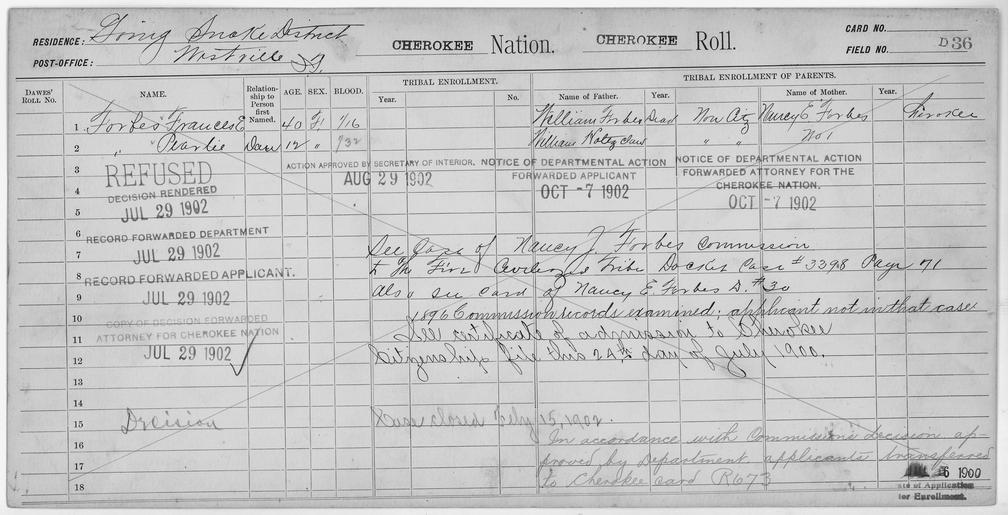 RESIDENCE: Going Snake District
POST-OFFICE: Westville I.T.
CHEROKEE Nation. CHEROKEE Roll.
CARD NO.
FIELD NO. D36
DAWES' ROLL NO.
NAME.
Relationship to Person first Named.
AGE. SEX. BLOOD.
TRIBAL ENROLLMENT.
Year. No.
TRIBAL ENROLLMENT OF PARENTS.
Name of Father. Year. Name of Mother. Year.
1 Forbes Frances E 40 F 1/16 William Forbes Dead Non Citz Nancy E Forbes Cherokee
2 " Pearlie Dau 12 " 1/32 William Holtzclaw " " No 1
3
4
5
6
7
8
9
10
11
12
13
14
15
16
17
18
REFUSED
DECISION RENDERED
JUL 29 1902
RECORD FORWARDED DEPARTMENT
JUL 29 1902
RECORD FORWARDED APPLICANT.
JUL 29 1902
COPY OF DECISION FORWARDED
ATTORNEY FOR CHEROKEE NATION
JUL 29 1902
ACTION APPROVED BY SECRETARY OF INTERIOR.
AUG 29 1902
NOTICE OF DEPARTMENTAL ACTION
FORWARDED APPLICANT
OCT -7 1902
NOTICE OF DEPARTMENTAL ACTION
FORWARDED ATTORNEY FOR THE
CHEROKEE NATION.
OCT -7 1902
See Case of Nancy J. Forbes Commission
to The Five Civilized Tribe Docket Case #3398 Page 71
Also see card of Nancy E Forbes D. #30
1896 Commission records examined; applicant not in that case
See certificate of admission to Cherokee
Citizenship, file this 24th day of July 1900.
Decision
Case closed Feby 15, 1902.
In accordance with Commission's decision ap-
proved by Department, applicants transferred
to Cherokee card R673
6 1900
of Application
for Enrollment.